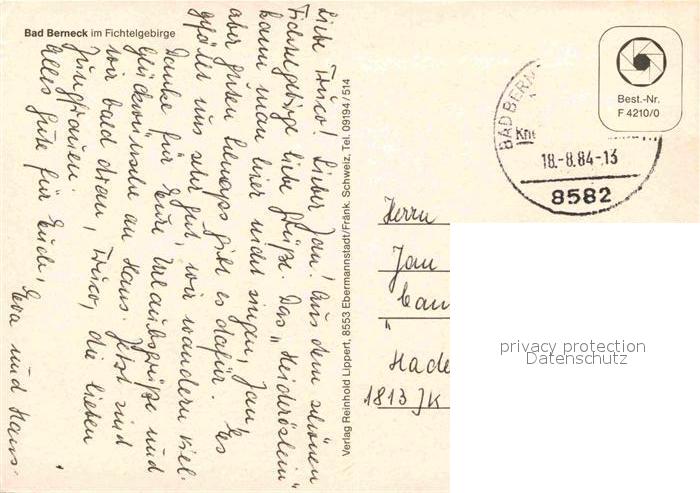 Bad Berneck im Fichtelgebirge
Liebe Truco! Lieber Jan! Aus dem schönen
Fichtelgebirge liebe Grüße. Das „Heideröslein"
kann man hier nicht singen, Jan,
aber guten Schnaps gibt es dafür. Es
gefällt uns sehr gut, wir wandern viel.
Danke für Eure Urlaubsgrüße und
Glückwünsche an Hans. Jetzt sind
wir bald dran, Truco, die lieben
Jungfrauen.
Alles Gute für Euch,
Eva und Hans.
Verlag Reinhold Lippert, 8553 Ebermannstadt/Fränk. Schweiz, Tel. 09194/514
Best.-Nr.
F 4210/0
BAD BERN
18.-8.84-13
8582
Herrn
Jan
Hade
1813 JK
privacy protection
Datenschutz